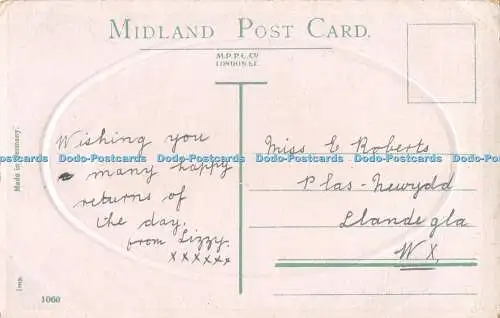 MIDLAND POST CARD.
M.P.P.C. Co
LONDON E.C.
Wishing you
many happy
returns of
the day.
from Lizzy.
xxxxxx
Miss E Roberts
Plas-Newydd
Llandegla
WX,
Made in Germany.
Imp.
1060
Dodo-Postcards Dodo-Postcards Dodo-Postcards Dodo-Postcards Dodo-Postcards